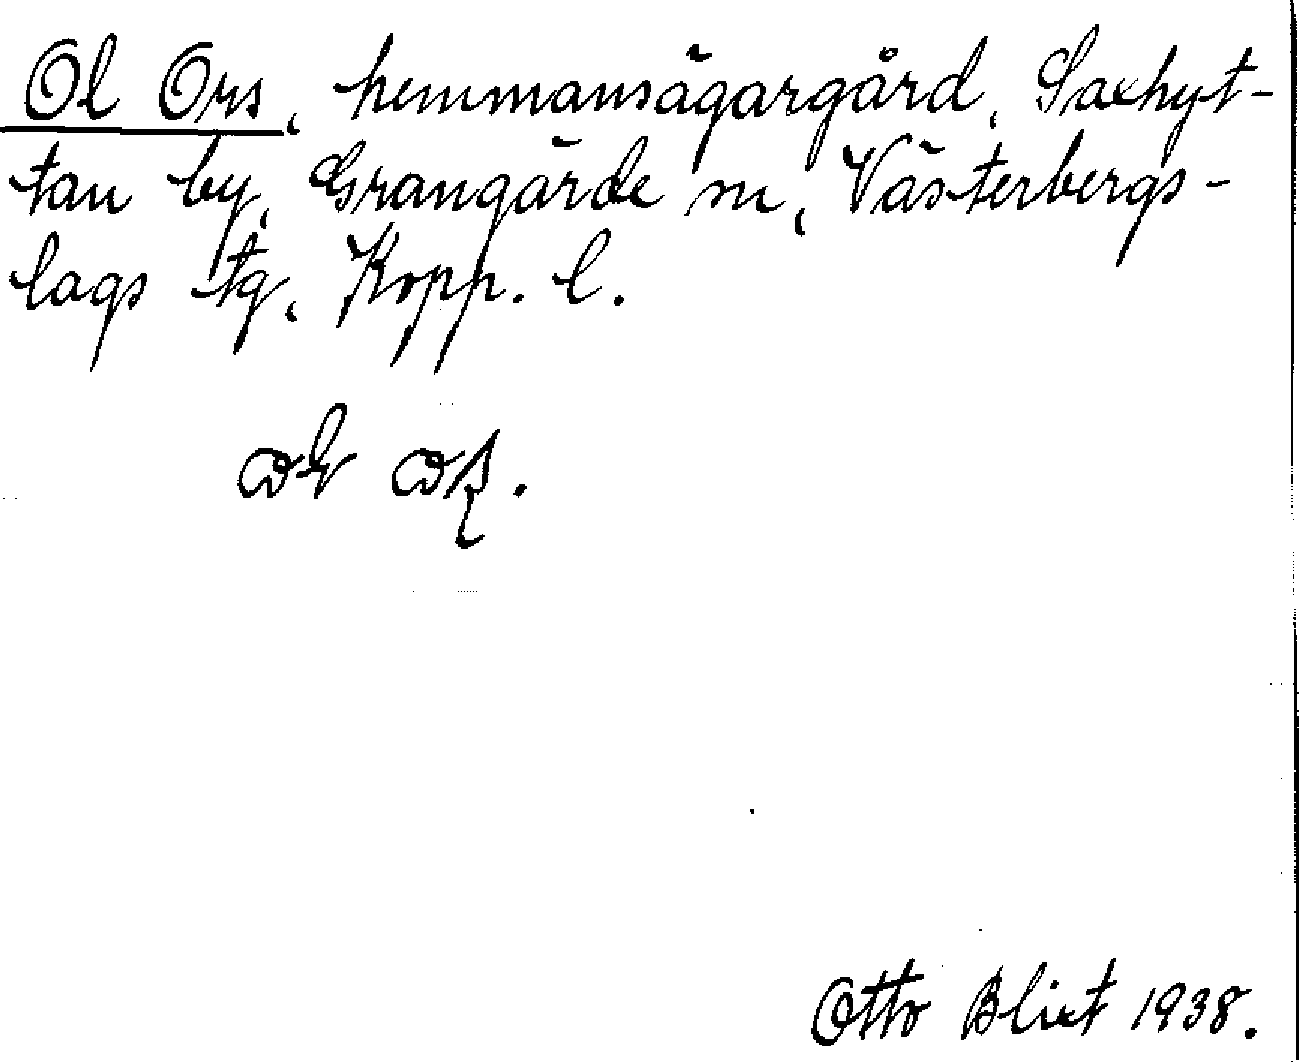 Ol Ors, hemmansägargård, Saxhyt-
tan by, Grangärde sn, Västerbergs-
lags tg, Kopp. l.
Otto Blixt 1938.